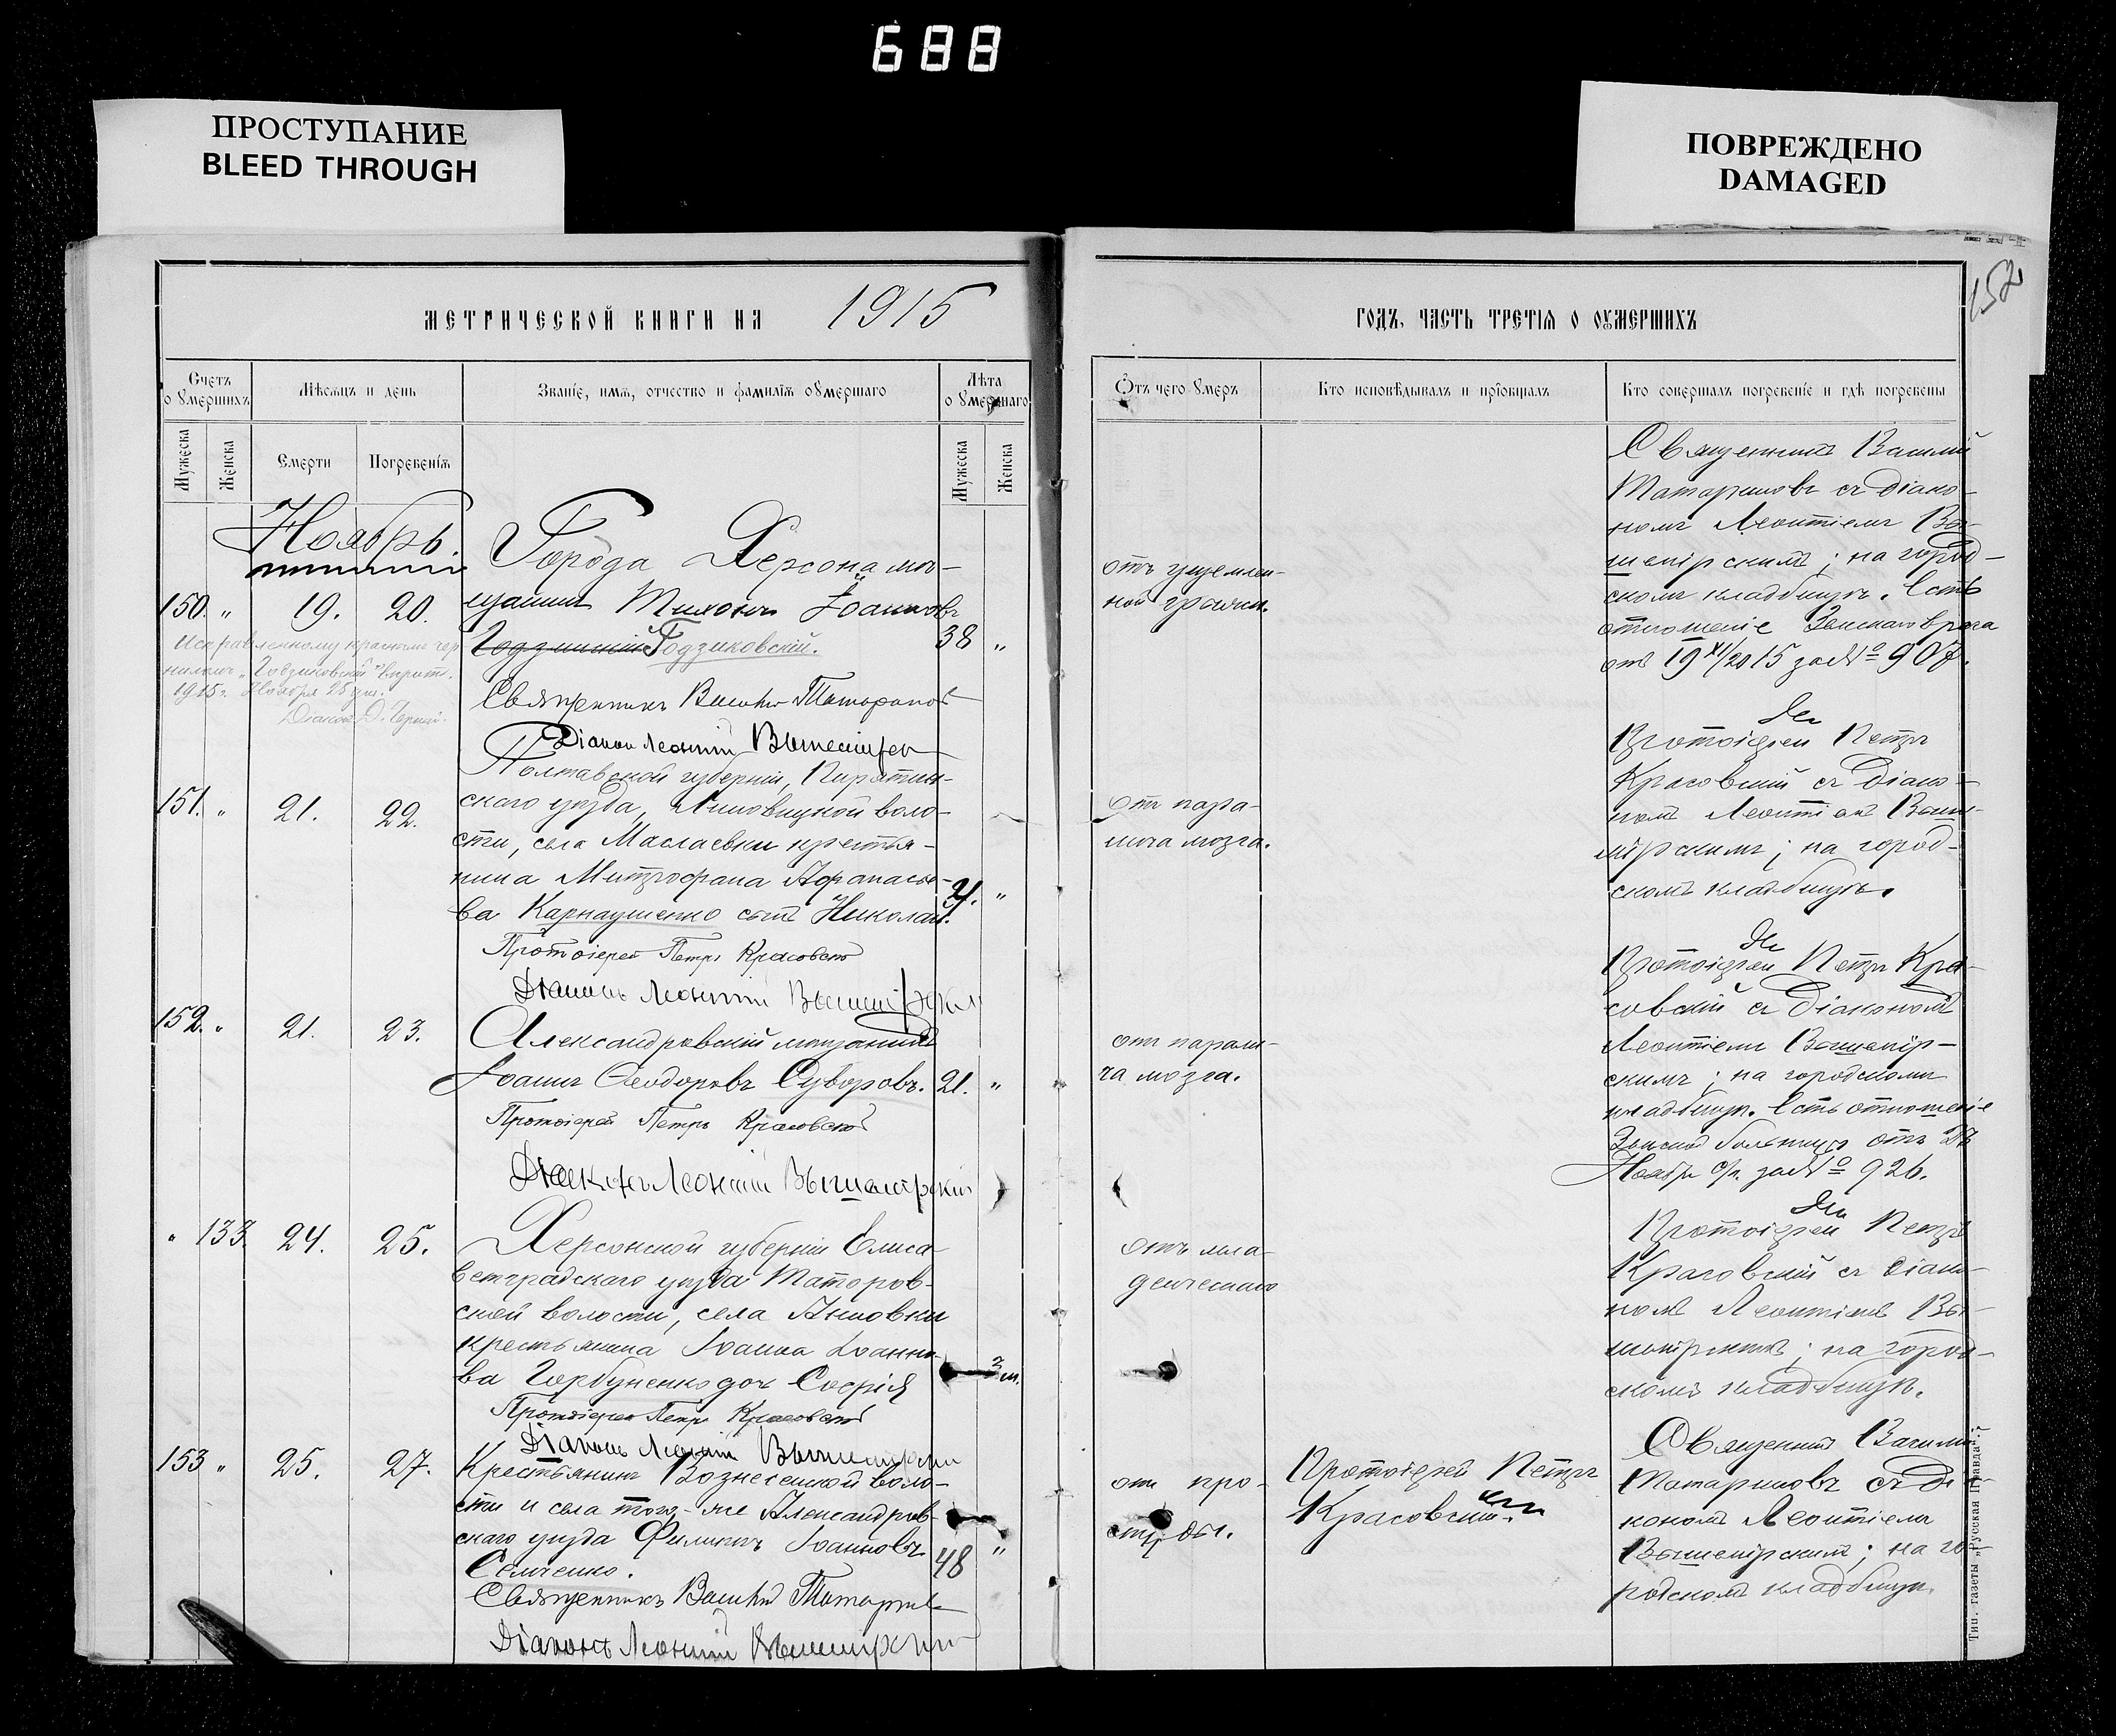 688
ПРОСТУПАНИЕ
BLEED THROUGH
ПОВРЕЖДЕНО
DAMAGED
152
МЕТРИЧЕСКОЙ КНИГИ НА 1915
ГОДЪ, ЧАСТЬ ТРЕТІЯ О ОУМЕРШИХЪ
Счетъ о умершихъ
Мѣсяцъ и день
Званіе, имя, отчество и фамилія оумершаго
Лѣта о умершаго
Мужеска
Женска
Смерти
Погребенія
Мужеска
Женска
Отъ чего умеръ
Кто исповѣдывалъ и пріобщалъ
Кто совершалъ погребеніе и гдѣ погребены
Ноябрь.
150. „ 19. 20.
Города Херсона мѣ-
щанинъ Тихонъ Іоанновъ
Годзиковскій. 38 „
Священникъ Василій Татариновъ
Діаконъ Леонтій Вышемірскій
отъ ущемлен-
ной грыжи.
Священникъ Василій
Татариновъ съ діако-
номъ Леонтіемъ Вы-
шемірскимъ; на город-
скомъ кладбищѣ. Есть
отношеніе Земскаго врача
отъ 19 XI/20 15 за № 907.
Исправленному красными чер
нилами „Годзиковскій" вѣрить.
1915 г. Ноября 25 дня.
Діаконъ Д.
151. „ 21. 22.
Полтавской губерніи, Пирятин-
скаго уѣзда, Линовицкой воло-
сти, села Маслаевки крестья-
нина Митрофана Аѳанасье-
ва Карнаушенко сынъ Николай.
21. „
Протоіерей Петръ Красовскій
Діаконъ Леонтій Вышемірскій
отъ пара-
лича мозга.
Протоіерей Петръ
Красовскій съ діако-
номъ Леонтіемъ Выше-
мірскимъ; на город-
скомъ кладбищѣ.
152. „ 21. 23.
Александровскій мѣщанинъ
Іоаннъ Ѳеодоровъ Суворовъ. 21. „
Протоіерей Петръ Красовскій
Діаконъ Леонтій Вышемірскій
отъ парали-
ча мозга.
Протоіерей Петръ Кра-
совскій съ діакономъ
Леонтіемъ Вышемір-
скимъ; на городскомъ
кладбищѣ. Есть отношеніе
Земской больницы отъ
Ноября с/г. за № 926.
„ 133. 24. 25.
Херсонской губерніи Елиса-
ветградскаго уѣзда
ской волости, села Анновки
крестьянина Іоанна Іоанно-
ва Горбуненко дочь Софія
3 м.
Протоіерей Петръ Красовскій
Діаконъ Леонтій Вышемірскій
отъ мла-
денческаго
Протоіерей Петръ
Красовскій съ діако-
номъ Леонтіемъ Вы-
шемірскимъ; на город-
скомъ кладбищѣ.
153 „ 25. 27.
Крестьянинъ Вознесенской воло-
сти и села того-же Александров-
скаго уѣзда Филиппъ Іоанновъ
Семченко. 48 „
Священникъ Василій Татариновъ
Діаконъ Леонтій Вышемірскій
отъ про-
студы.
Протоіерей Петръ
Красовскій
Священникъ Василій
Татариновъ съ діа-
кономъ Леонтіемъ
Вышемірскимъ; на го-
родскомъ кладбищѣ.
Тип. газеты „Русская Правда".